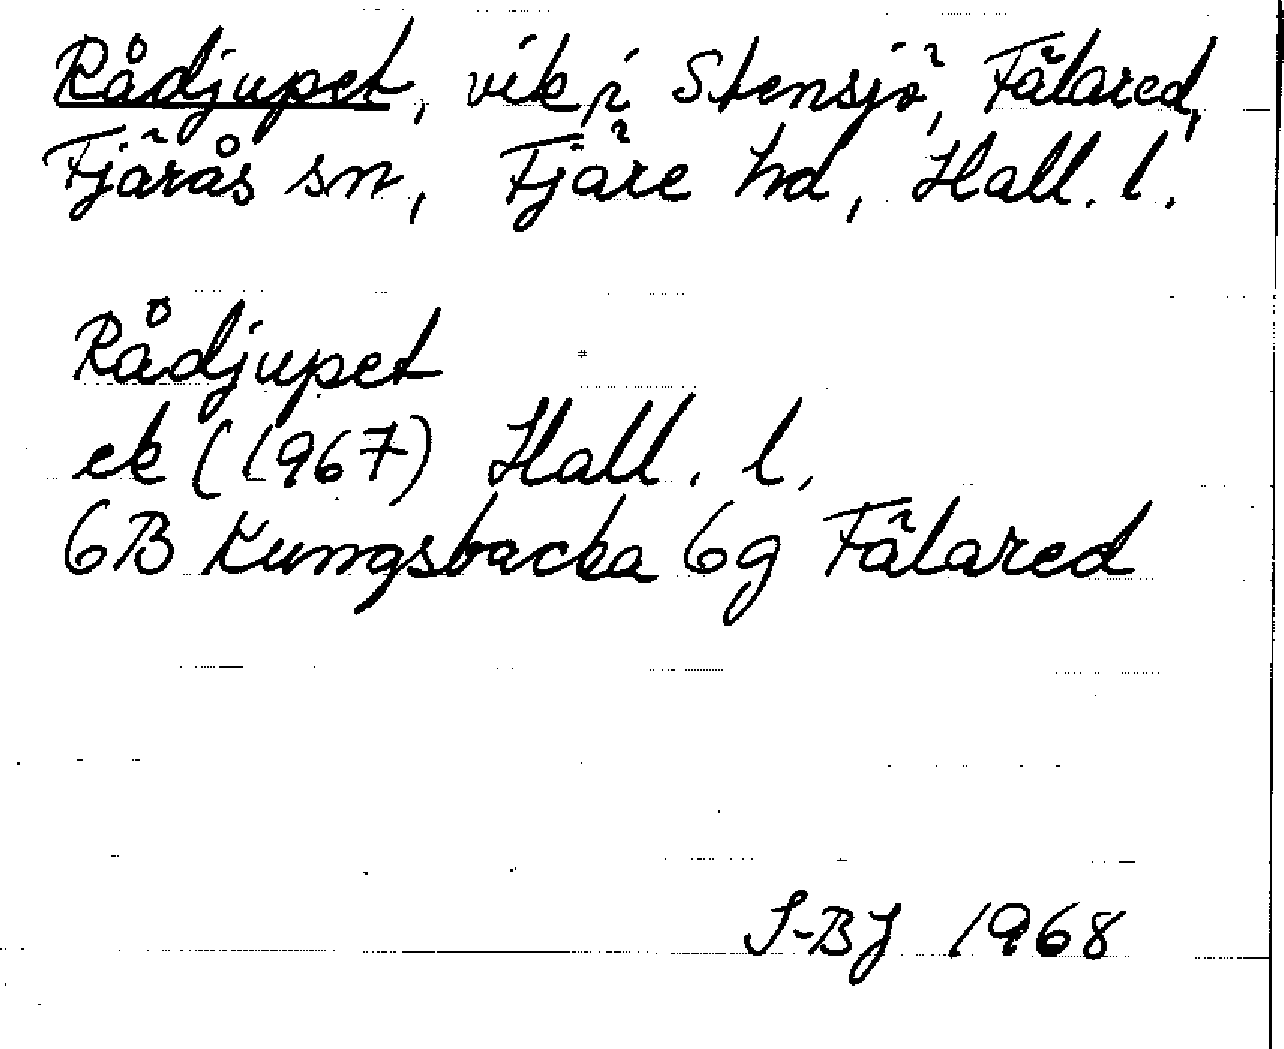 Rådjupet, vik i Stensjö, Fälared,
Fjärås sn, Fjäre hd, Hall. l.
Rådjupet
ek (1967) Hall. l.
6B Kungsbacka 6g Fälared
S-BJ 1968